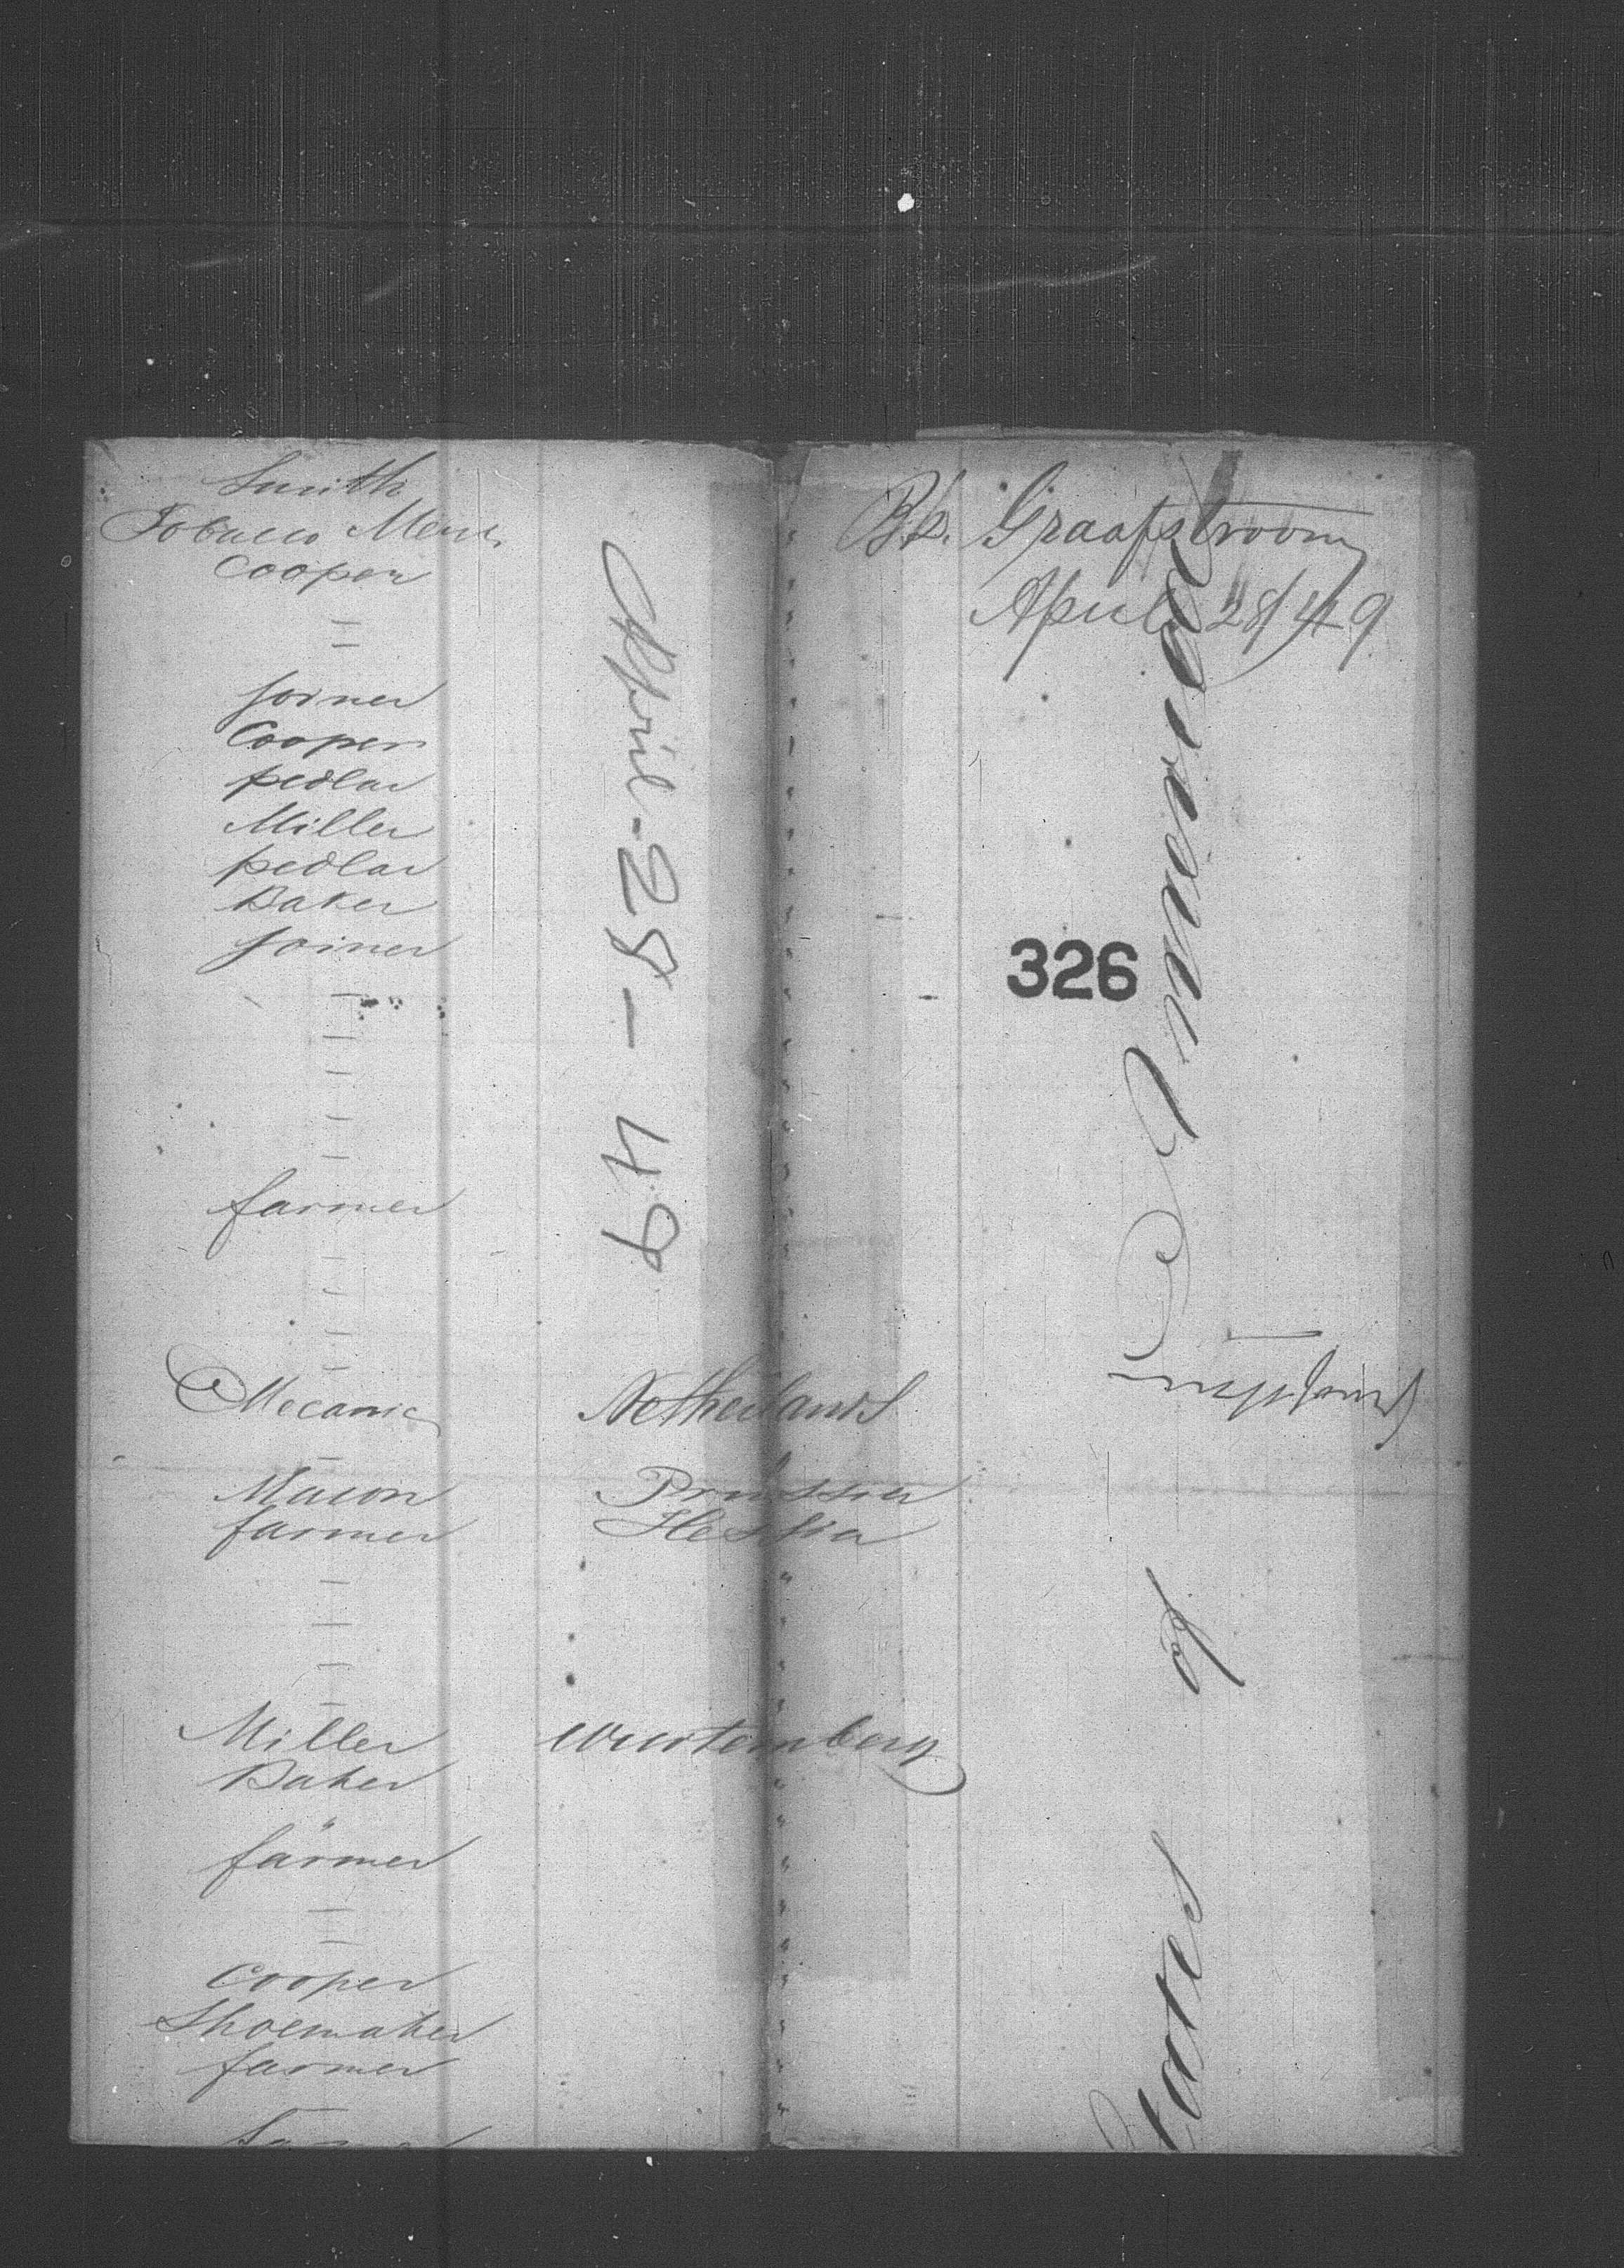 Smith
Tobacco Merch.
Cooper
=
Joiner
Cooper
pedlar
Miller
pedlar
Baker
Joiner
—
—
—
—
—
farmer
—
—
—
—
Mecanic
—
Mason
farmer
—
—
—
—
Miller
Baker
"
farmer
—
—
Cooper
Shoemaker
farmer
April-28-49
Netherlands
Prussia
Hessia
"
Wurtemberg
Bk. Graafstroom
April 28/49
326
States of America